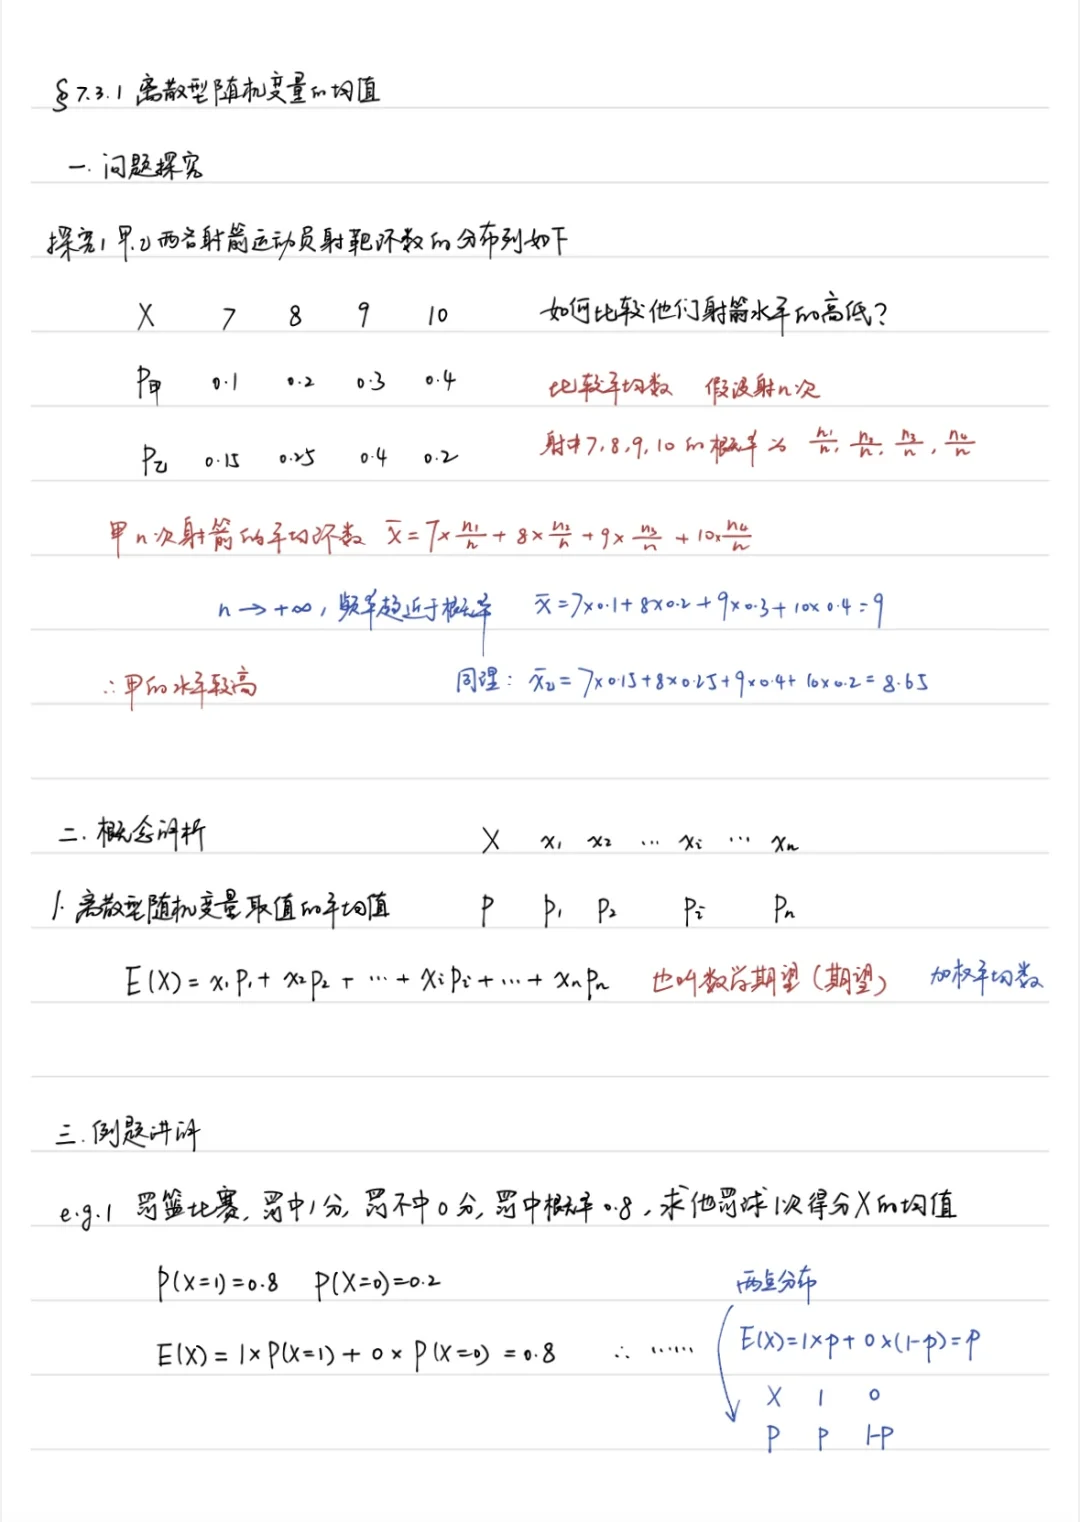 §7.3.1 离散型随机变量的均值
一. 问题探究
探究1 甲.乙两名射箭运动员射靶环数的分布列如下
X 7 8 9 10 如何比较他们射箭水平的高低?
P甲 0.1 0.2 0.3 0.4 比较平均数 假设射n次
P乙 0.15 0.25 0.4 0.2 射中7,8,9,10的概率为 n₁/n, n₂/n, n₃/n, n₄/n
甲n次射箭的平均环数 x̄=7×n₁/n+8×n₂/n+9×n₃/n+10×n₄/n
n→+∞, 频率趋近于概率 x̄=7×0.1+8×0.2+9×0.3+10×0.4=9
∴甲的水平较高 同理: x̄乙=7×0.15+8×0.25+9×0.4+10×0.2=8.65
二. 概念讲析 X x₁ x₂ … xᵢ … xₙ
1. 离散型随机变量取值的平均值 P P₁ P₂ Pᵢ Pₙ
E(X)=x₁P₁+x₂P₂+…+xᵢPᵢ+…+xₙPₙ 也叫数学期望(期望) 加权平均数
三. 例题讲评
e.g.1 罚篮比赛, 罚中1分, 罚不中0分, 罚中概率0.8, 求他罚球1次得分X的均值
P(X=1)=0.8 P(X=0)=0.2 两点分布
E(X)=1×P(X=1)+0×P(X=0)=0.8 ∴…… E(X)=1×p+0×(1-p)=p
X 1 0
P P 1-P